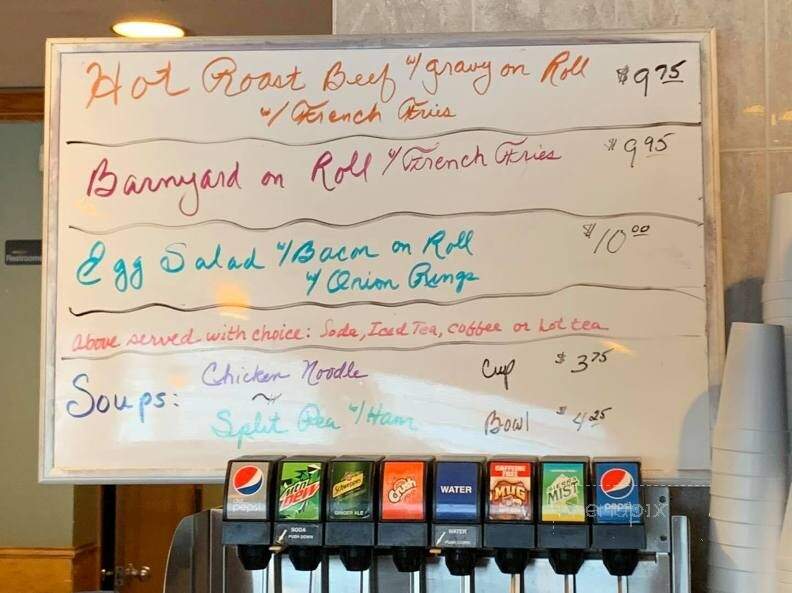 Hot Roast Beef w/ gravy on Roll $9.75
w/ French Fries
Barnyard on Roll w/ French Fries $9.95
Egg Salad w/ Bacon on Roll $10.00
w/ Onion Rings
above served with choice: Soda, Iced Tea, coffee or hot tea
Soups: Chicken Noodle Cup $3.75
Split Pea w/ Ham Bowl $4.25
Restrooms
pepsi
mtn dew
Schweppes
GINGER ALE
Crush
WATER
CAFFEINE FREE
MUG
MIST
pepsi
SODA
PUSH DOWN
WATER
PUSH DOWN